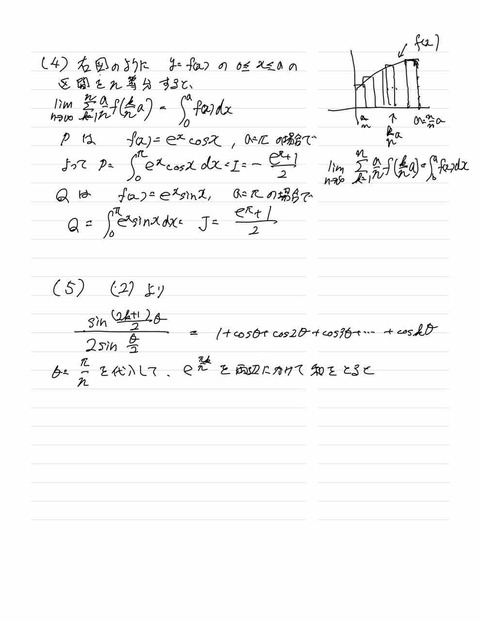 (4) 右図のように y=f(x) の 0≤x≤a の
区間を n 等分すると、
lim n→∞ Σ k=1 n a/n f(k/n a) = ∫0 a f(x)dx
P は f(x)=e^x cosx, a=π の場合で
よって P= ∫0 π e^x cosx dx = I = - (e^π+1)/2
Q は f(x)=e^x sinx, a=π の場合で
Q = ∫0 π e^x sinx dx = J = (e^π+1)/2
f(x)
a/n
k/n a
a=n/n a
lim n→∞ Σ k=1 n a/n f(k/n a) = ∫0 a f(x)dx
(5) (2) より
sin (2k+1)/2 θ / 2sin θ/2 = 1+cosθ+cos2θ+cos3θ+⋯+coskθ
θ=π/n を代入して、e^(πk/n) を両辺にかけて和をとると